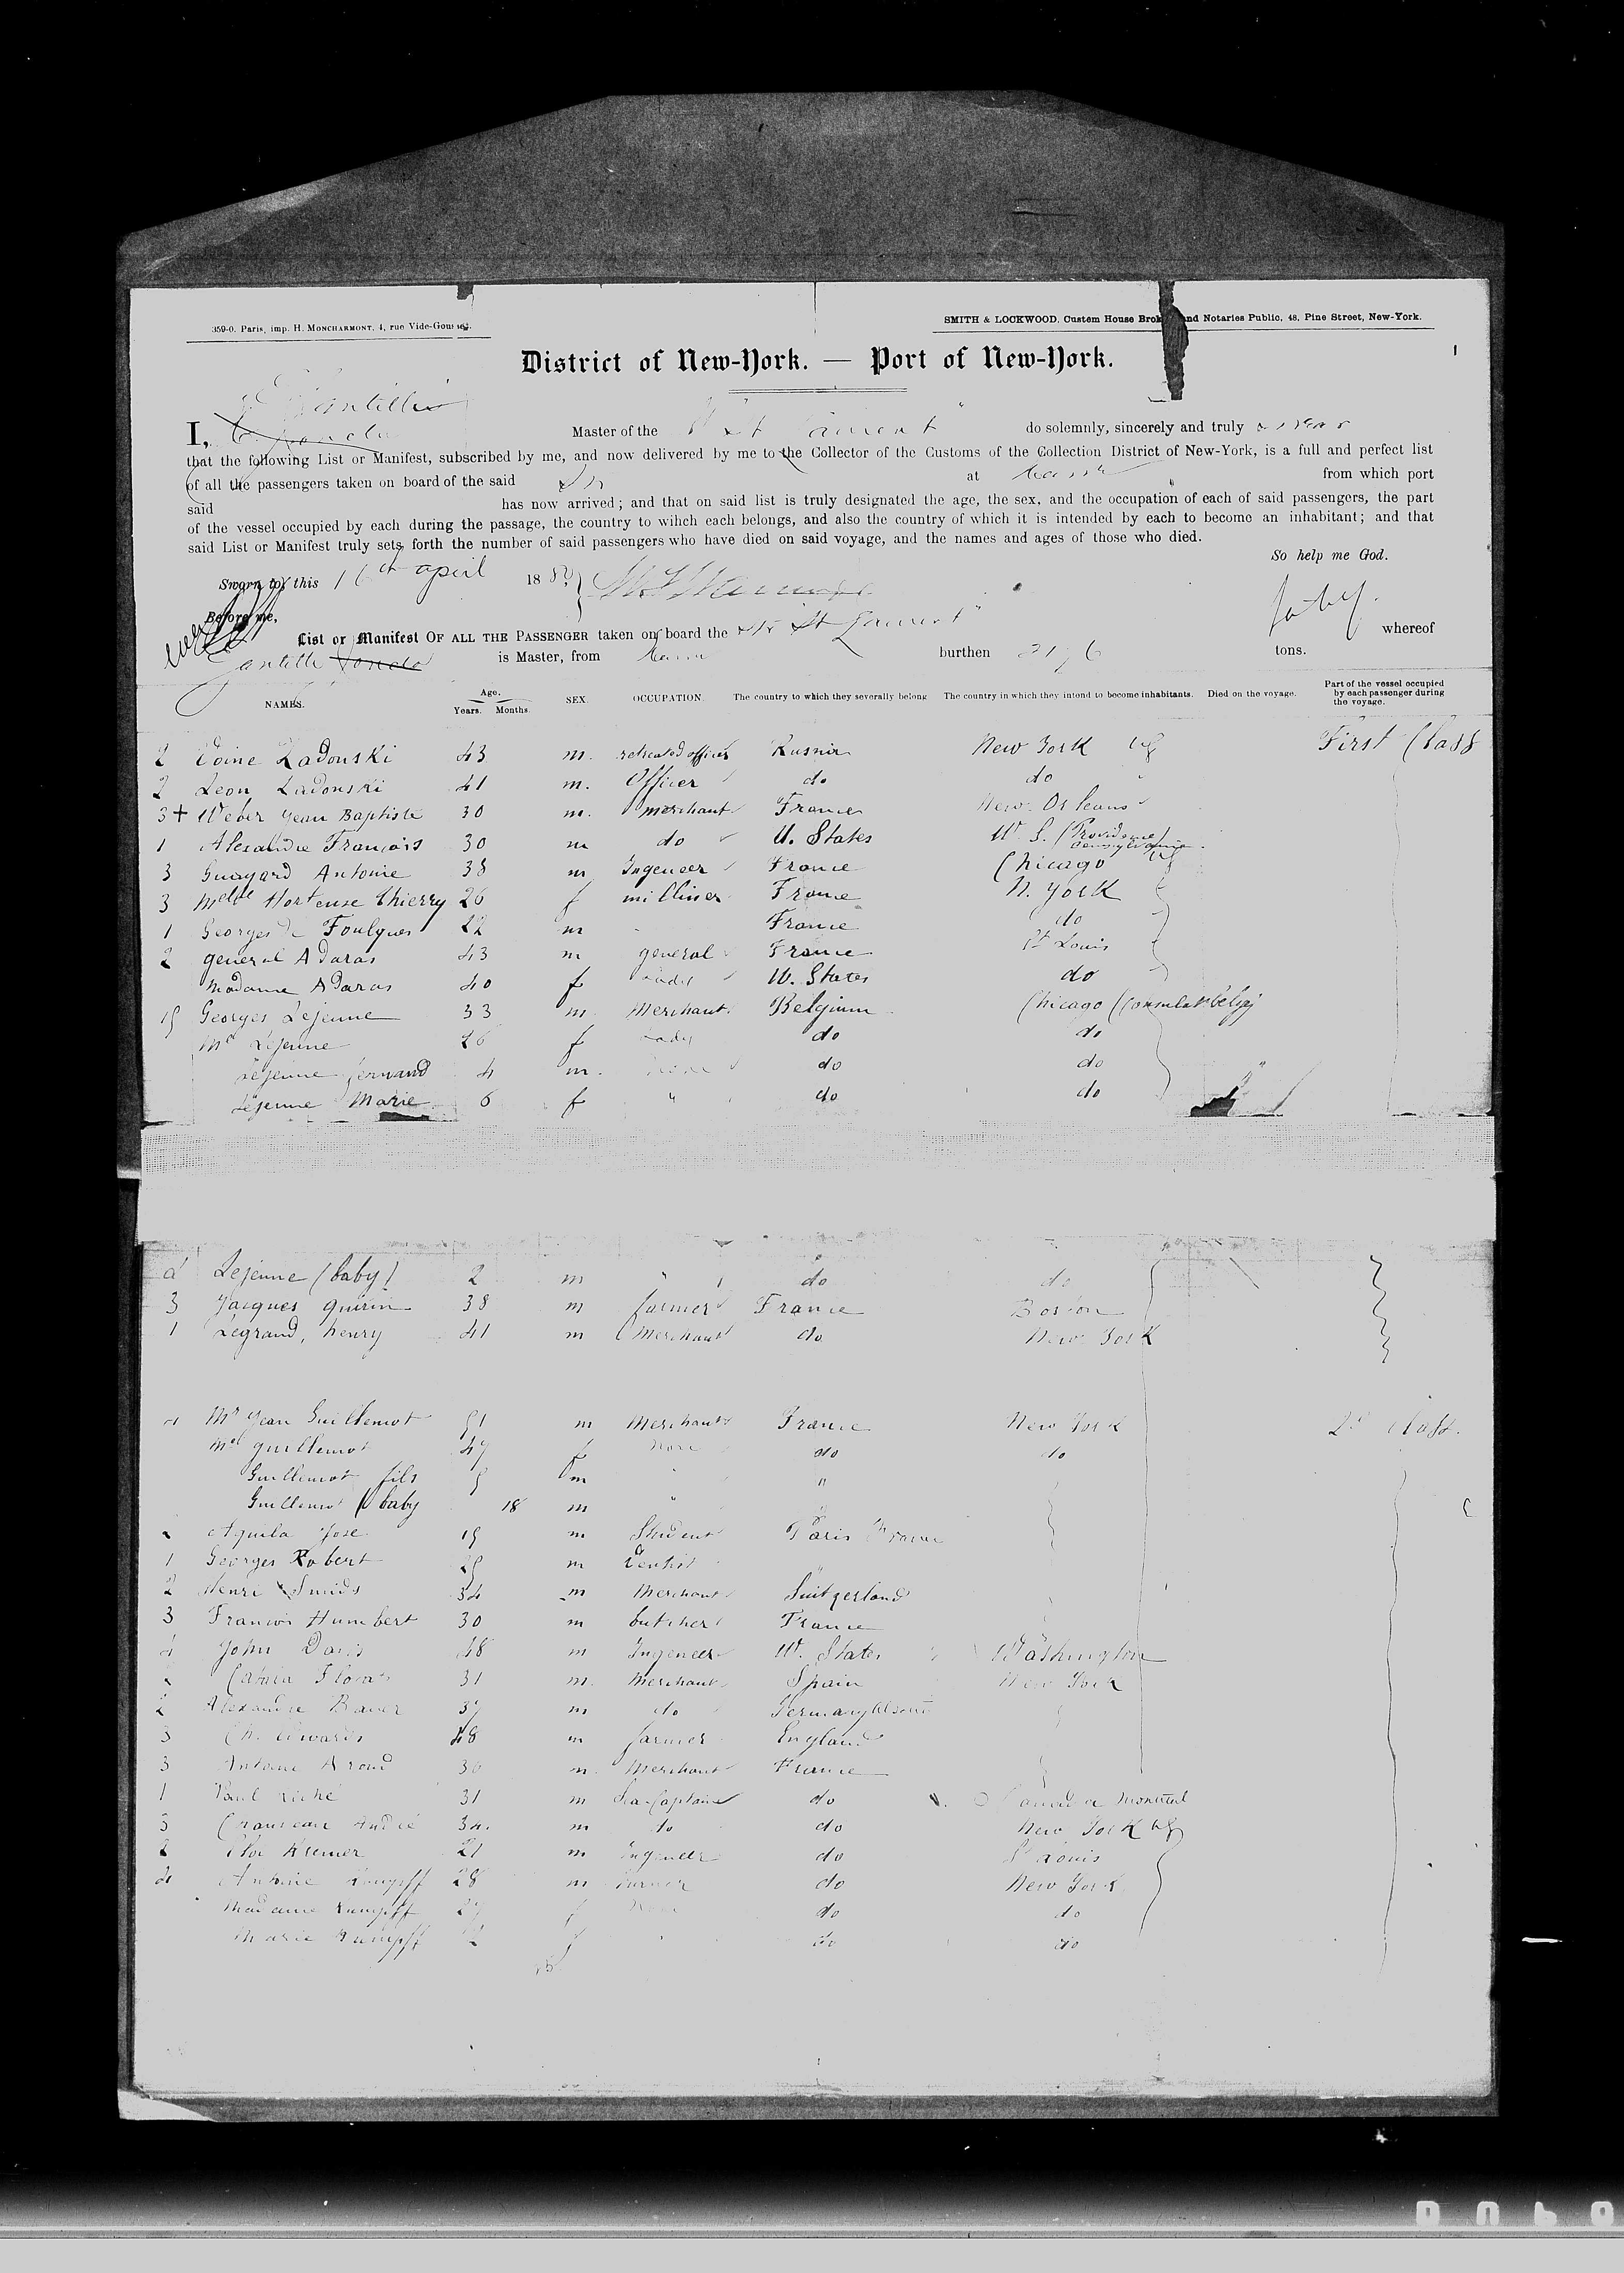 359-0. Paris, imp. H. MONCHARMONT, 4, rue Vide-Gousset.
SMITH & LOCKWOOD, Custem House Brok and Notaries Public, 48, Pine Street, New-York.
District of New-York. — Port of New-York.
1
I, Master of the St Laurent" do solemnly, sincerely and truly swear
that the following List or Manifest, subscribed by me, and now delivered by me to the Collector of the Customs of the Collection District of New-York, is a full and perfect list
of all the passengers taken on board of the said at from which port
said has now arrived; and that on said list is truly designated the age, the sex, and the occupation of each of said passengers, the part
of the vessel occupied by each during the passage, the country to wihch each belongs, and also the country of which it is intended by each to become an inhabitant; and that
said List or Manifest truly sets forth the number of said passengers who have died on said voyage, and the names and ages of those who died.
So help me God.
Sworn to, this 16th april 188
Before me,
List or Manifest OF ALL THE PASSENGER taken on board the St Laurent" whereof
is Master, from burthen tons.
NAMES. Age. Years. Months. SEX. OCCUPATION. The country to which they severally belong The country in which they intend to become inhabitants. Died on the voyage. Part of the vessel occupied by each passenger during the voyage.
2 Ladouski 43 m. officer Russia New York First Class
2 Leon Ladouski 41 m. Officer do do
3 + Weber Jean Baptiste 30 m. merchant France New Orleans
1 Alexandre Francois 30 m do U. States U. S. (Providence) Pennsylvania
3 Guayard Antoine 38 m Ingeneer France Chicago
3 Melle Hortense Thierry 26 f milliner France N. York
1 Georges de Foulques 22 m France do
2 general Adaras 43 m general France St Louis
Madame Adaras 40 f Lady U. States do
Georges Lejeune 33 m Merchant Belgium Chicago (Consulat belge)
Md Lejeune 26 f Lady do do
Lejeune fernand 4 m. none do do
Lejeune Marie 6 f " do do
Lejeune (baby) 2 m " do do
3 Jacques Guirin 38 m farmer France Boston
1 Legrand, henry 41 m Merchant do New York
Mr Jean Guillemot 51 m Merchant France New York 2d Class.
Md guillemot 47 f None do do
Guillemot fils 5 m "
Guillemot (baby 18 m "
Aquila Jose 19 m Student Paris France
1 Georges Robert 29 m Dentist
2 Henri Smids 34 m Merchant Suitzerland
3 Francois Humbert 30 m butcher France
4 John Davis 48 m Ingeneer U. States Washington
Flovas 31 m. Merchant Spain New York
2 Alexandre Bauer 37 m do Germany
3 Ch. Edwards 48 m farmer England
3 Antoine 30 m. Merchant France
1 Paul 31 m Sea Captain do Canada Montreal
3 André 34. m do do New York
2 Kremer 21 m Ingeneer do St Louis
4 Antoine Kumpff 28 m do New York
Madame Kumpff 27 f None do do
Marie Kumpff 2 f " do do